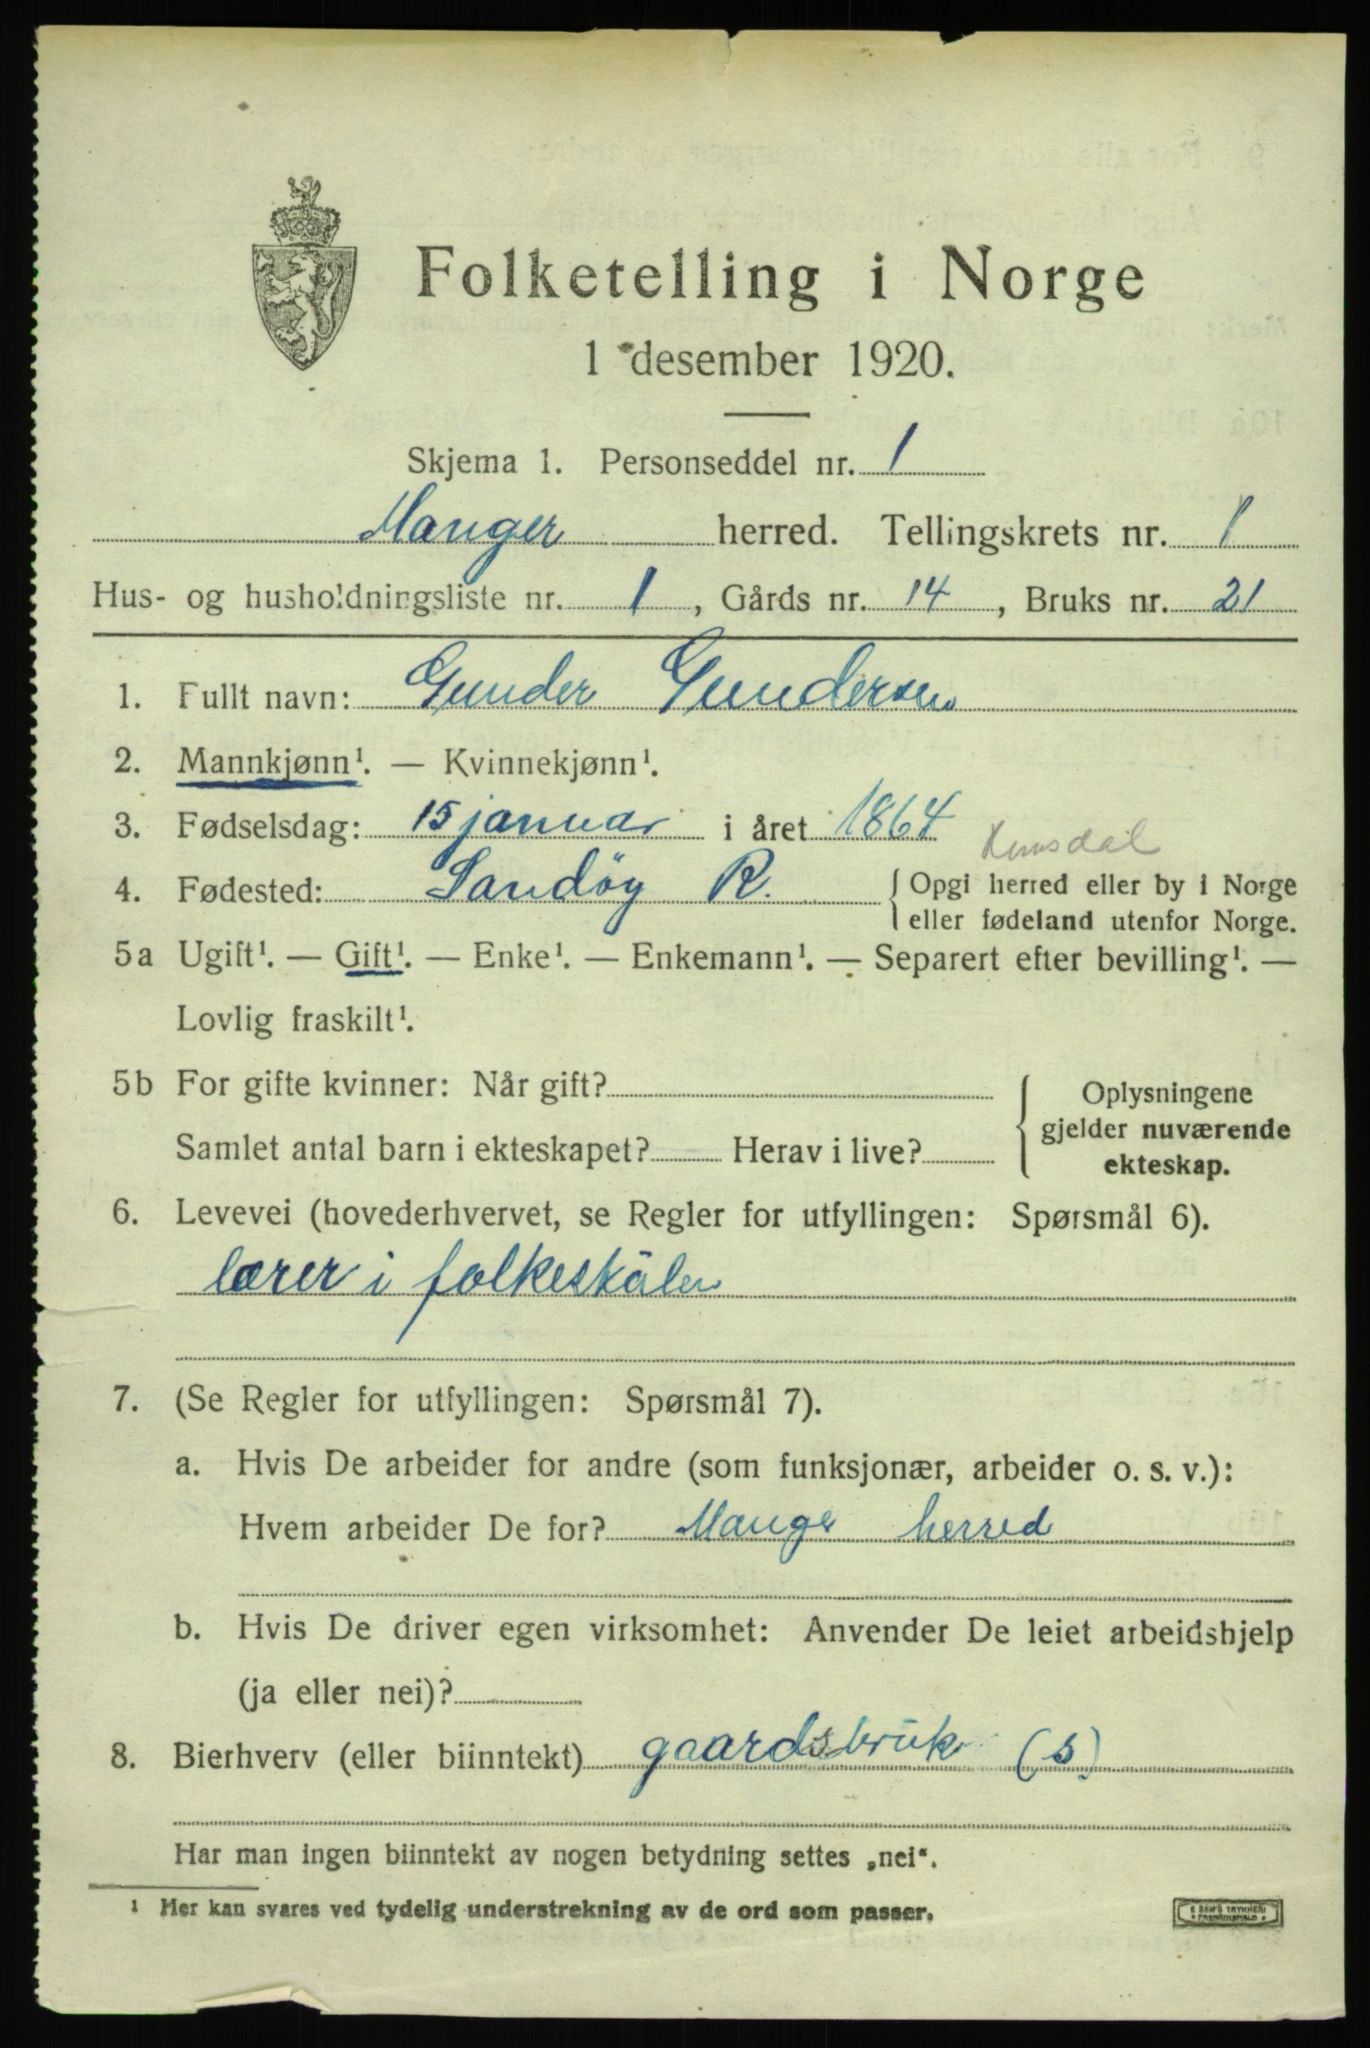 Folketelling i Norge
1 desember 1920.
Skjema 1. Personseddel nr. 1
Manger herred. Tellingskrets nr. 1
Hus- og husholdningsliste nr. 1, Gårds nr. 14, Bruks nr. 21
1. Fullt navn: Gunder Gundersen
2. Mannkjønn¹. — Kvinnekjønn¹.
3. Fødselsdag: 15 januar i året 1864
Rumsdal
4. Fødested: Sandöy R. { Opgi herred eller by i Norge
eller fødeland utenfor Norge.
5a Ugift¹. — Gift¹. — Enke¹. — Enkemann¹. — Separert efter bevilling¹. —
Lovlig fraskilt¹.
5b For gifte kvinner: Når gift?
Samlet antal barn i ekteskapet? Herav i live?
{ Oplysningene
gjelder nuværende
ekteskap.
6. Levevei (hovederhvervet, se Regler for utfyllingen: Spørsmål 6).
lærer i folkeskålen
7. (Se Regler for utfyllingen: Spørsmål 7).
a. Hvis De arbeider for andre (som funksjonær, arbeider o. s. v.):
Hvem arbeider De for? Manger herred
b. Hvis De driver egen virksomhet: Anvender De leiet arbeidshjelp
(ja eller nei)?
8. Bierhverv (eller biinntekt) gaardsbruk (s)
Har man ingen biinntekt av nogen betydning settes „nei“.
¹ Her kan svares ved tydelig understrekning av de ord som passer.
E SEM'S TRYKKERI
FREDRIKSHALD